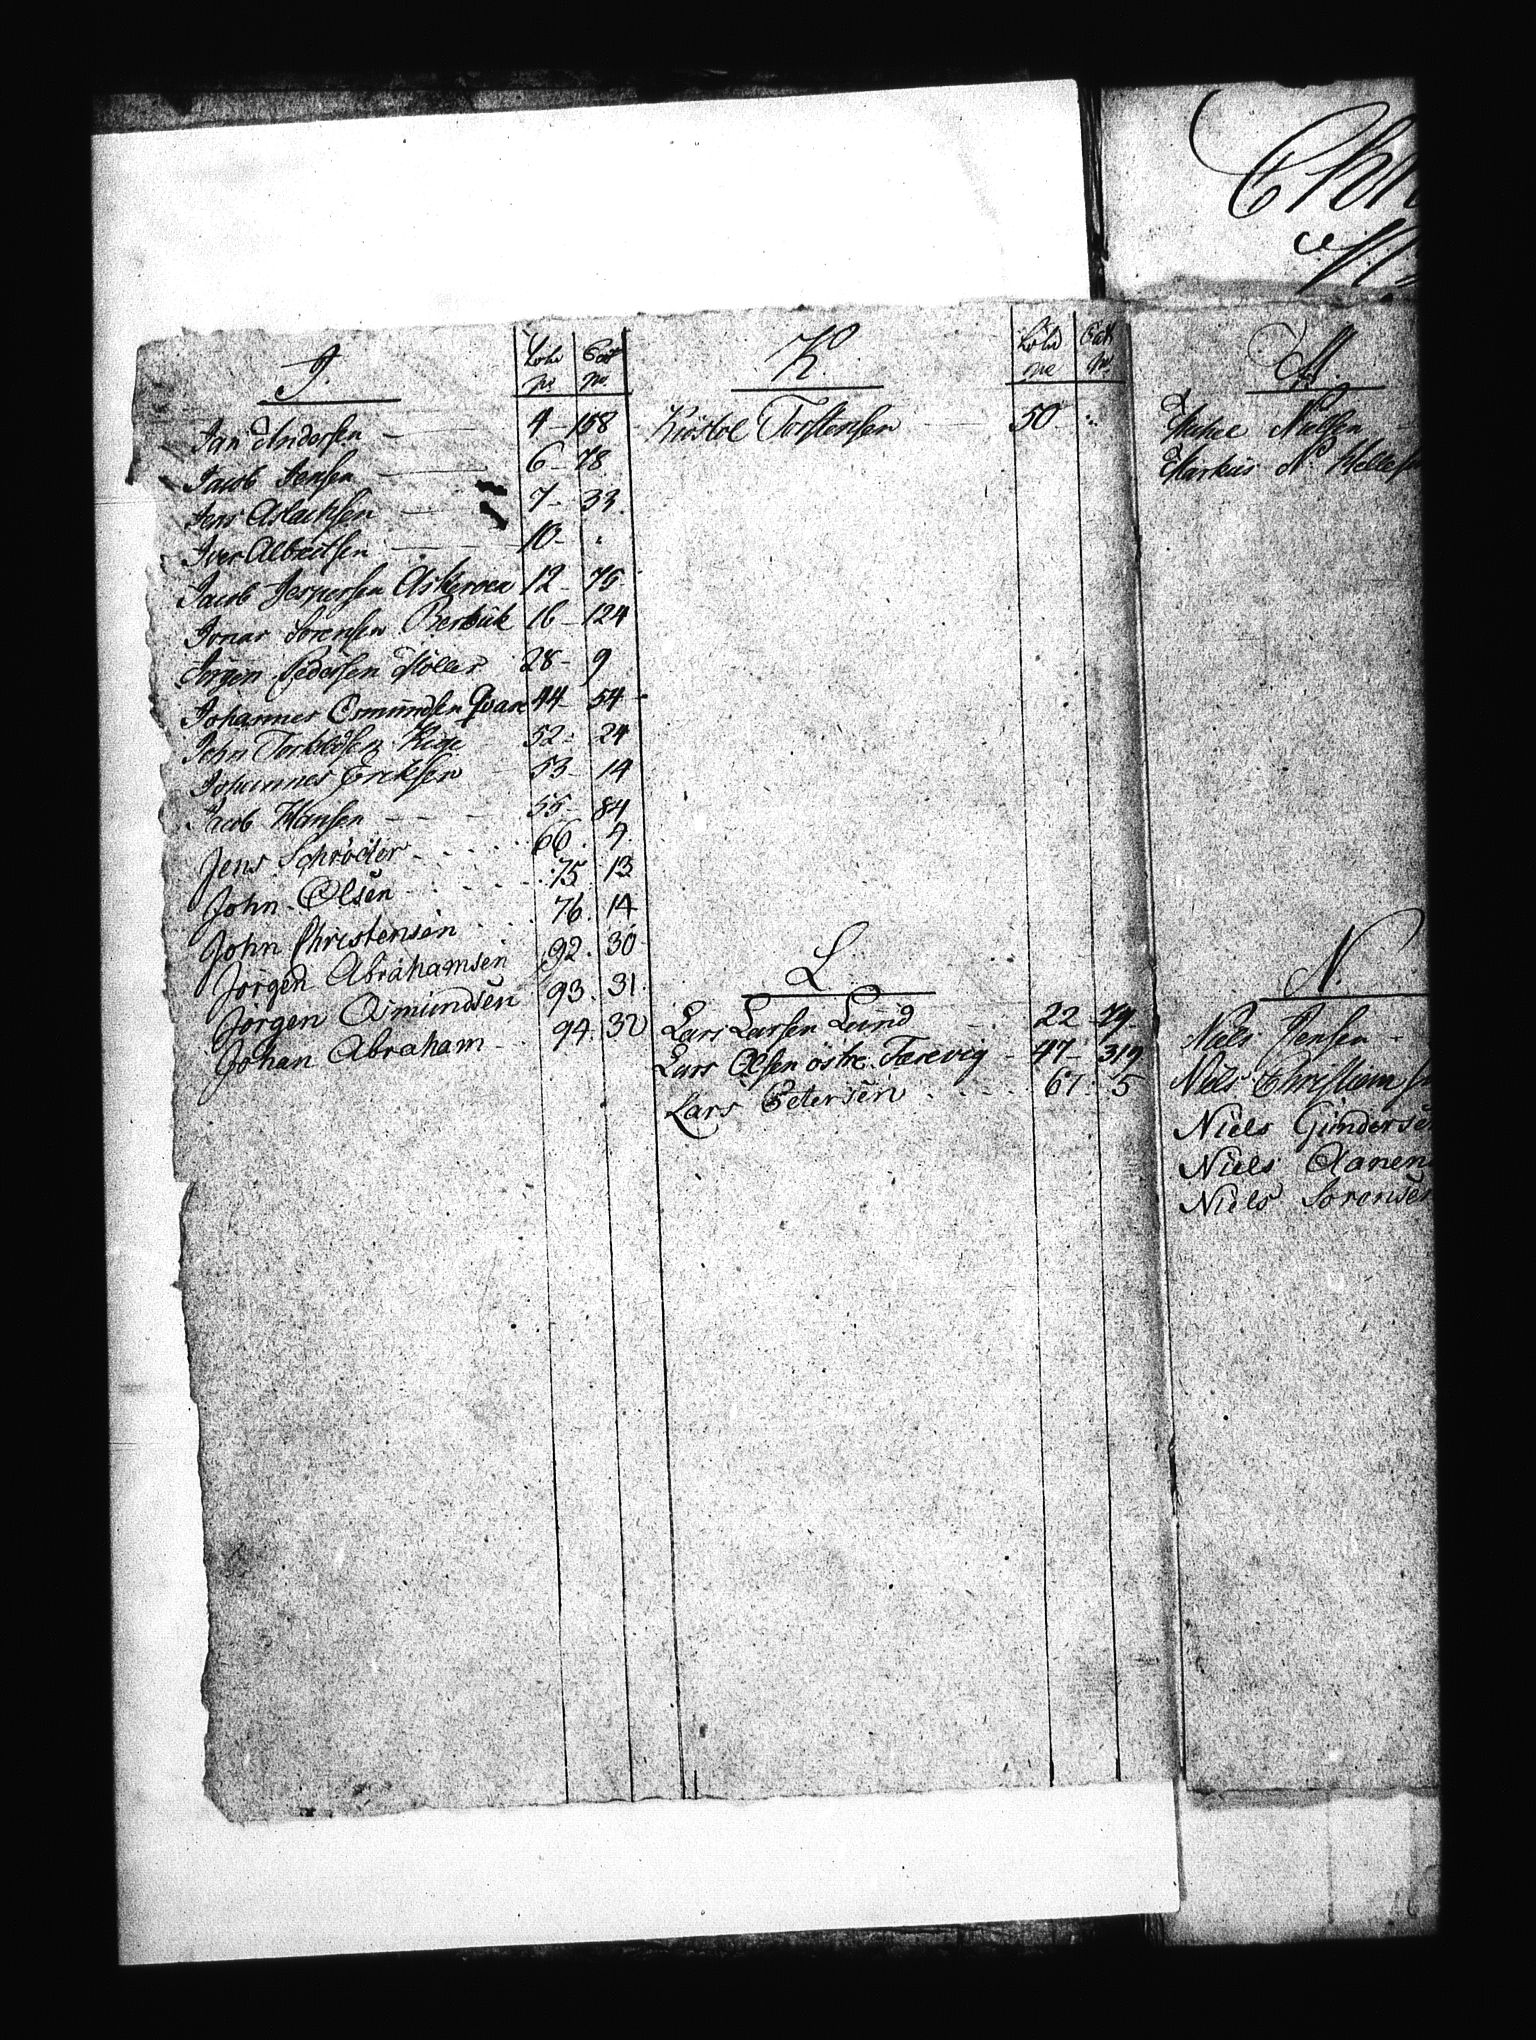 J.
No. No.
Jan Andersen 4 - 158
Jacob Jensen 6 - 78
Jens Aslachsen 7 - 33
Iver Albretsen 10 -
Jacob Jespersen Askeroen 12 - 75
Jonas Sørensen Berbük 16 - 124
Jörgen Pedersen Möller 28 - 9
Johannes Osmundsen Qvare 44 - 54
John Torkildsen Kige 52 - 24
Johannes Ericksen 53 - 14
Jacob Hansen 55 - 84
Jens Schrøder 66 . 4
John Olsen 75 . 13
John Christensen 76 . 14
Jørgen Abrahamsen 92 . 30
Jørgen Osmundsen 93 . 31
Johan Abraham 94 . 32
K.
No. No.
Kistol Torstensen 50
L.
Lars Larsen Lund 22 - 79
Lars Olsen østre Færevig 47 - 319
Lars Petersen 67 . 5
Chr
M.
Nielsen
Markus N. Helle
N.
Niels Jensen
Niels Christian
Niels Gundersen
Niels Aanen
Niels Sørensen